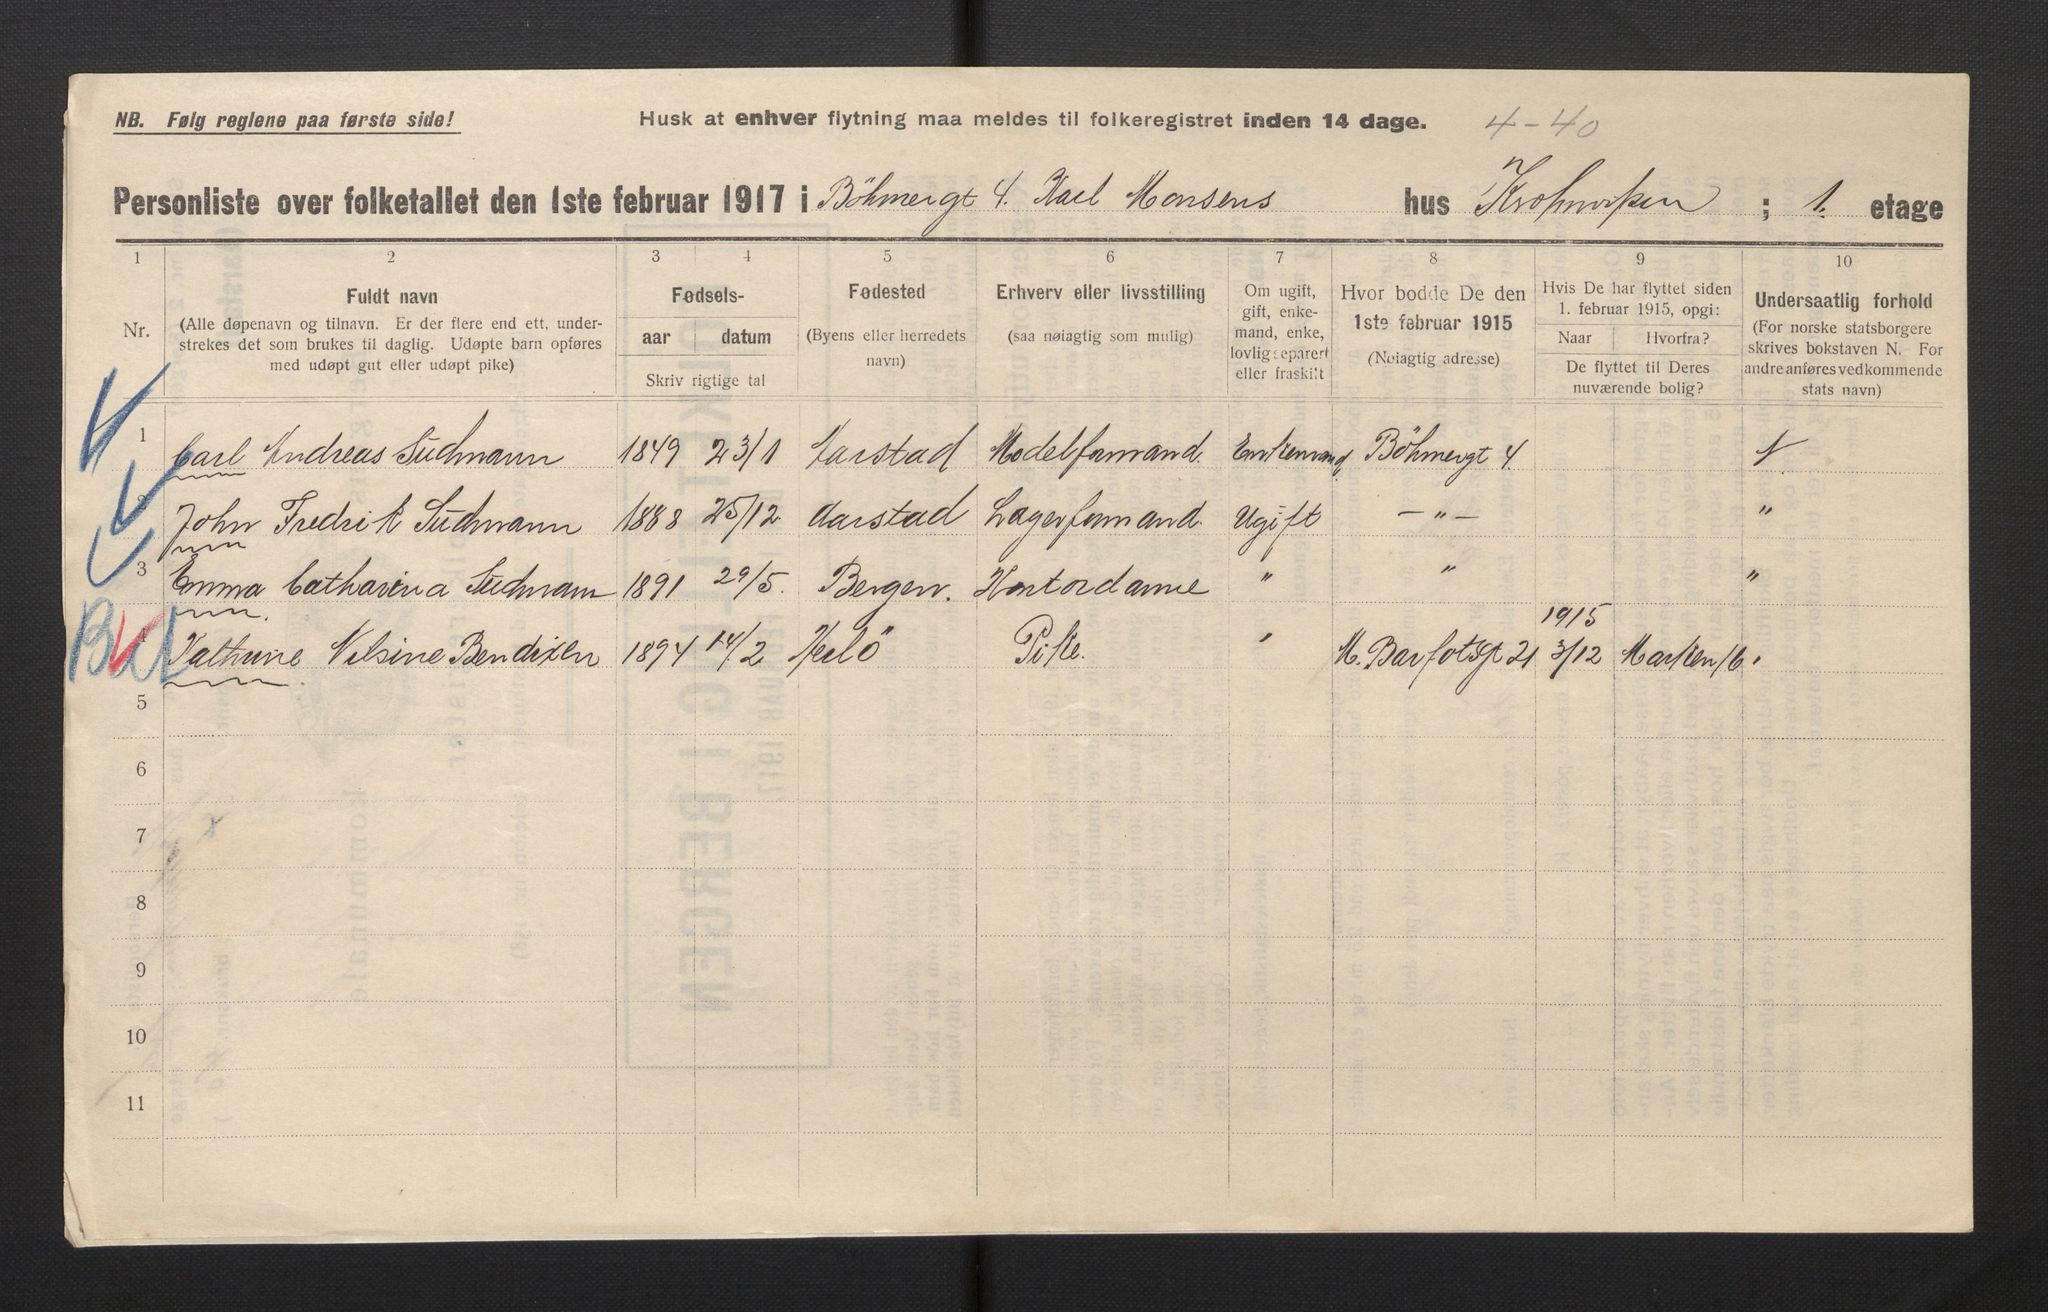 NB. Følg reglene paa første side! Husk at enhver flytning maa meldes til folkeregistret inden 14 dage. 4-40
Personliste over folketallet den 1ste februar 1917 i Böhmergt 4. Karl Monsens hus ; 1. etage
1 2 3 4 5 6 7 8 9 10
Nr.
Fuldt navn
(Alle døpenavn og tilnavn. Er der flere end ett, under-
strekes det som brukes til daglig. Udøpte barn opføres
med udøpt gut eller udøpt pike)
Fødsels-
aar datum
Skriv rigtige tal
Fødested
(Byens eller herredets
navn)
Erhverv eller livsstilling
(saa nøiagtig som mulig)
Om ugift,
gift, enke-
mand, enke,
lovlig separert
eller fraskilt
Hvor bodde De den
1ste februar 1915
(Nøiagtig adresse)
Hvis De har flyttet siden
1. februar 1915, opgi:
Naar Hvorfra?
De flyttet til Deres
nuværende bolig?
Undersaatlig forhold
(For norske statsborgere
skrives bokstaven N. For
andre anføres vedkommende
stats navn)
1 Carl Andreas Sudmann 1849 23/1 Aarstad Modelformand. Enkemand Böhmergt 4. N
2 John Fredrik Sudmann 1888 25/12 Aarstad Lagerformand. Ugift — " — "
3 Emma Catharina Sudmann 1891 29/5. Bergen. Kontordame " " "
1915
4 Kathrine Nilsine Bendixen 1894 14/2 Herlö Pike. " M. Barfotsgt 21 3/12 Marken 16 "
5
6
7
8
9
10
11